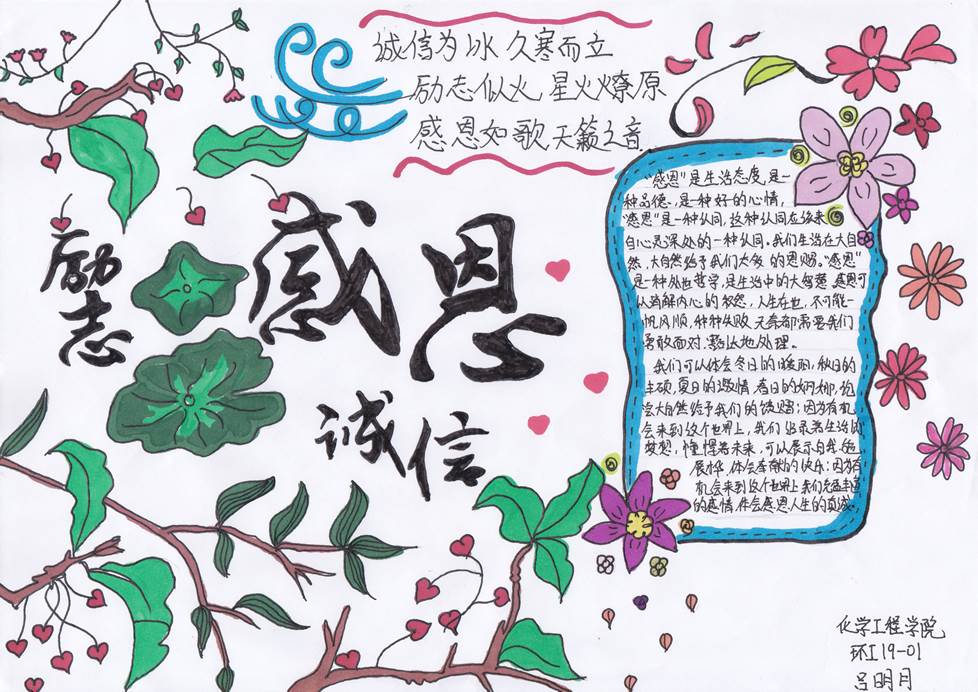 诚信为冰 久寒而立
励志似火 星火燎原
感恩如歌 天籁之音
励志
感恩
诚信
"感恩"是生活态度,是一
种品德,是一种好的心情,
"感恩"是一种认同,这种认同应该来
自心灵深处的一种认同。我们生活在大自
然,大自然给予我们太多的恩赐。"感恩"
是一种处世哲学,是生活中的大智慧 感恩可
以消解内心的 人生在世,不可能一
帆风顺,种种失败 无奈都需要我们
勇敢面对.豁达地处理。
我们可以体会冬日的暖阳,秋日的
丰硕,夏日的激情 春日的 
大自然给予我们的馈赠;因为有机
会来到这个世界上,我们 着生活的
梦想,憧憬着未来,可以展示自我
体会奉献的快乐;因为有
机会来到这个世界上我们
的真情 体会感恩人生的真诚
化学工程学院
环工19-01
吕明月